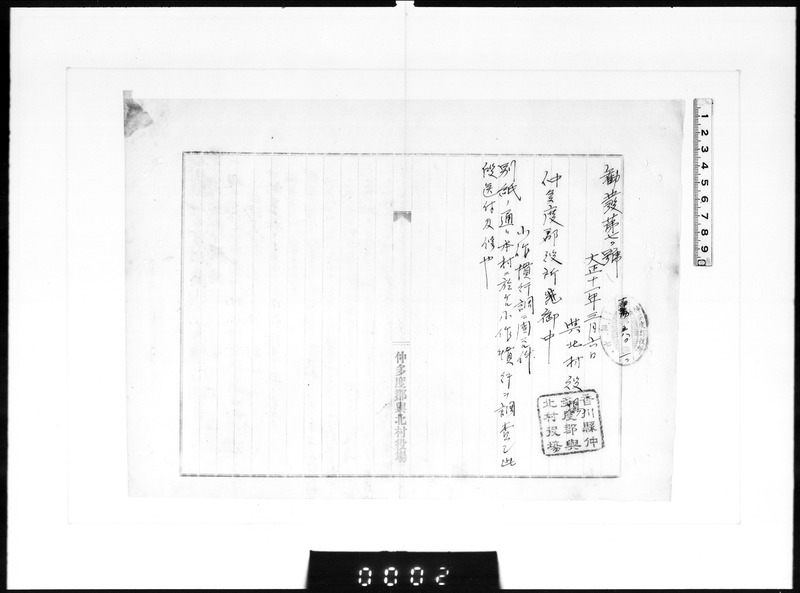 勸發第七〇號
大正十一年三月六日
與北村役場
香川縣仲
多度郡與
北村役場
仲多度郡役所 御中
小作慣行調ニ関スル件
別紙ノ通リ本村ニ於ケル小作慣行ヲ調査シ此
段送付及候也
仲多度郡與北村役場
1 2 3 4 5 6 7 8 9
0002